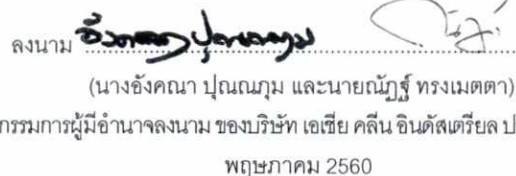 ลงนาม
(นางอังคณา ปุณณภุม และนายณัฏฐ์ ทรงเมตตา)
กรรมการผู้มีอำนาจลงนาม ของบริษัท เอเชีย คลีน อินดัสเตรียล ป
พฤษภาคม 2560